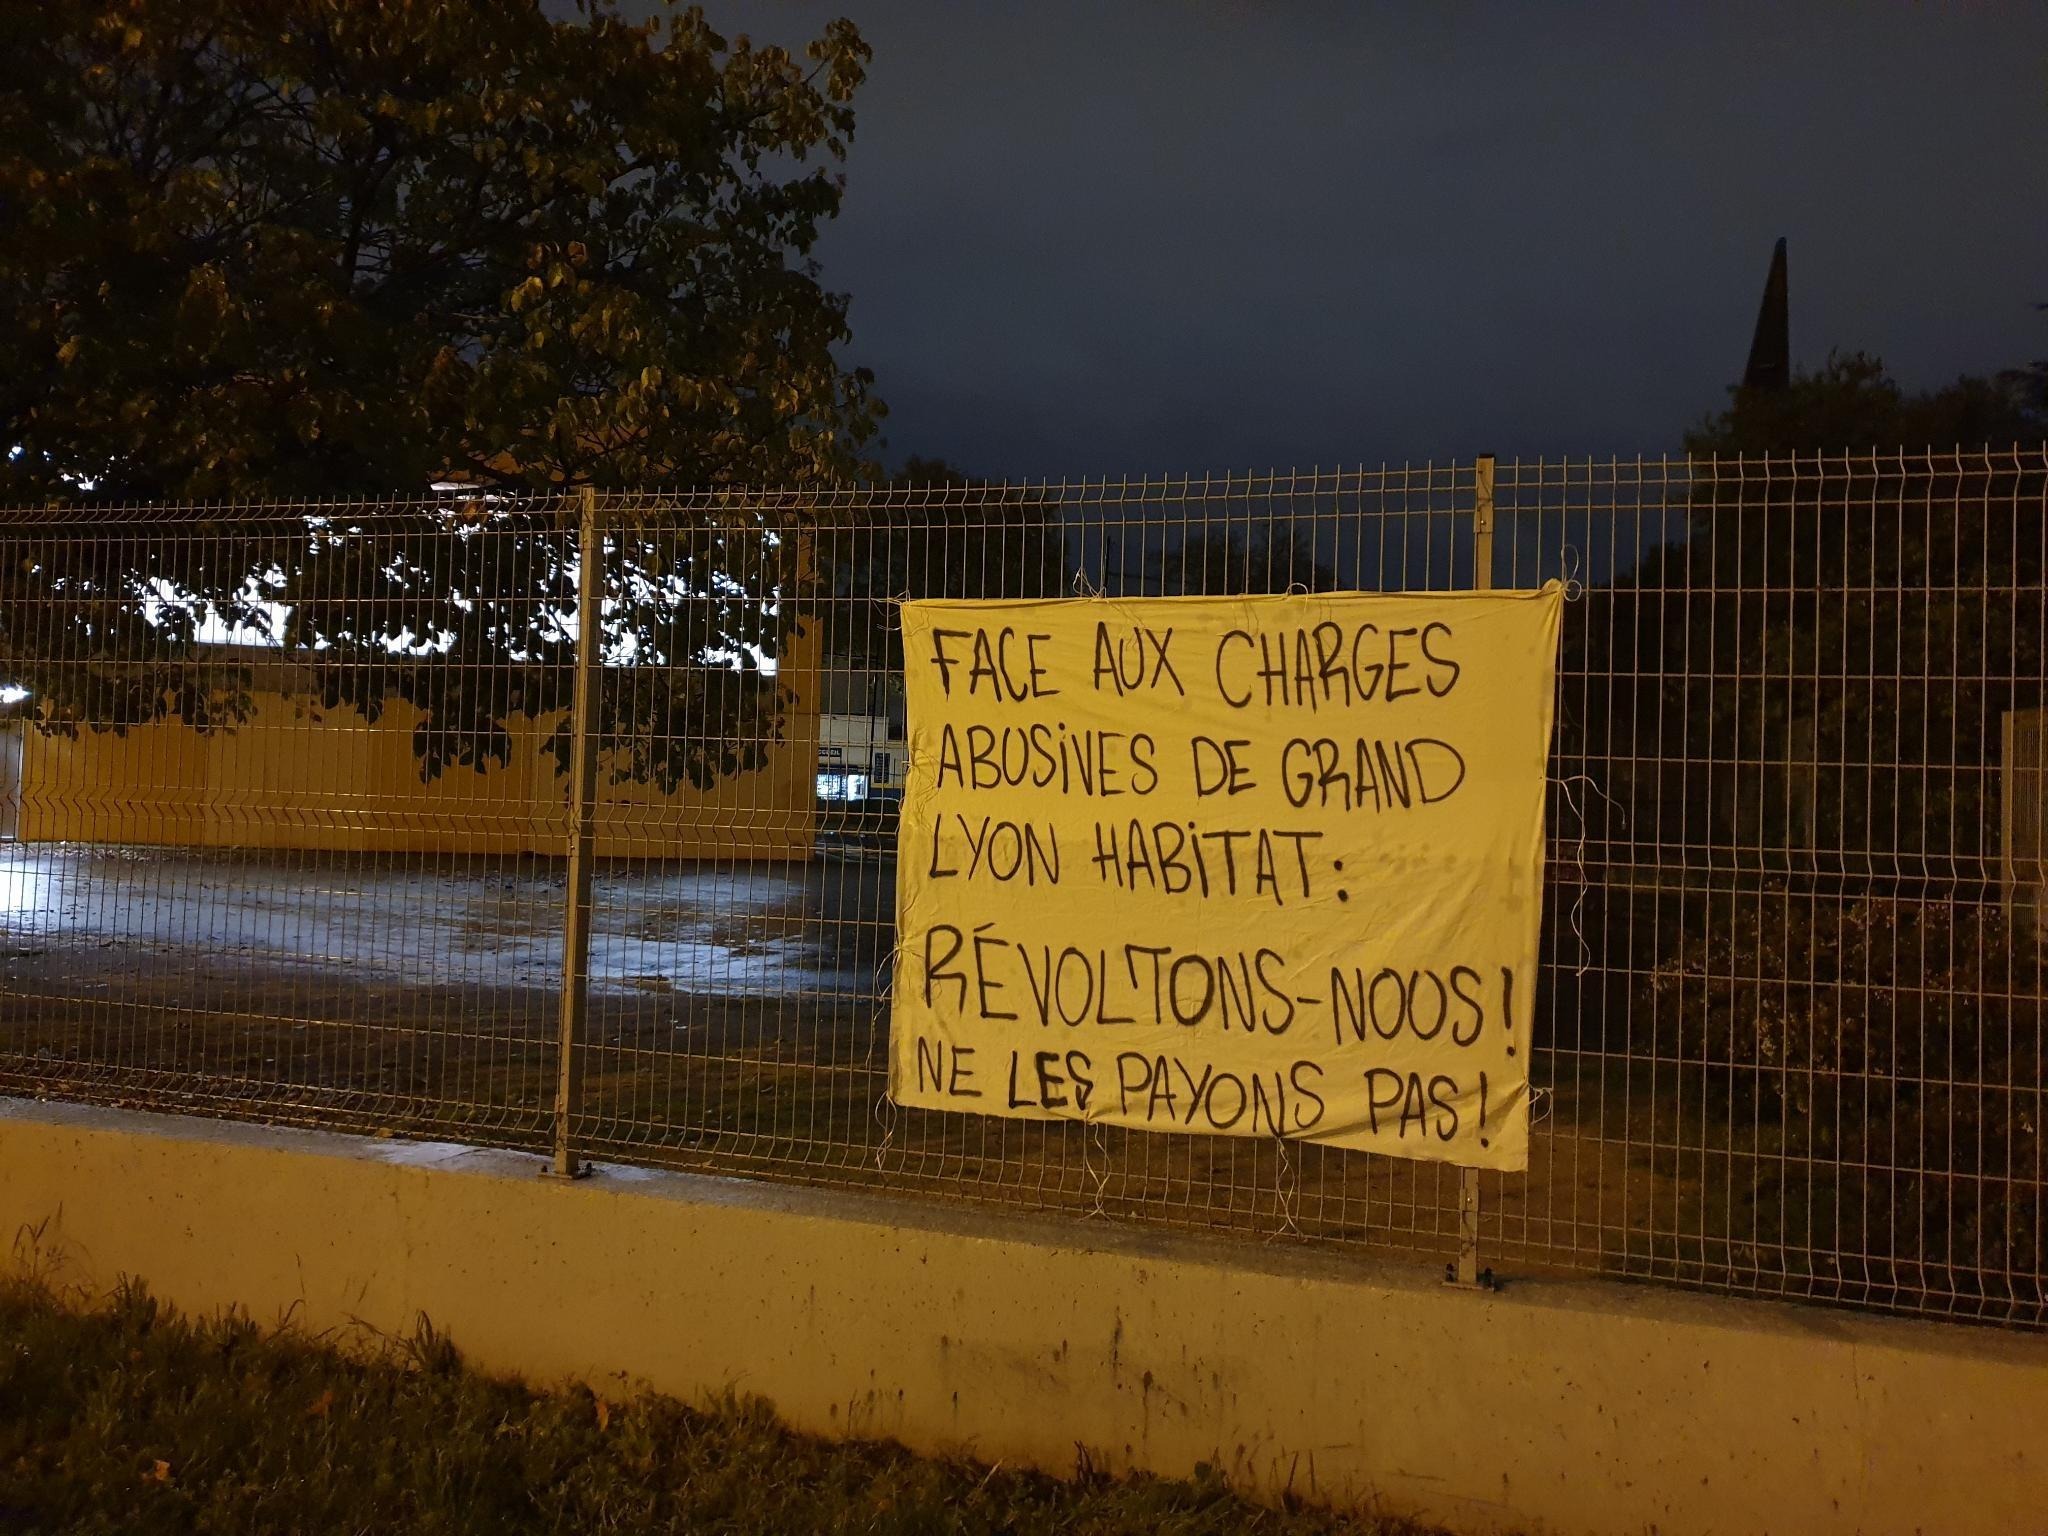 FACE AUX CHARGES
ABUSIVES DE GRAND
LYON HABITAT :
RÉVOLTONS-NOUS !
NE LES PAYONS PAS !